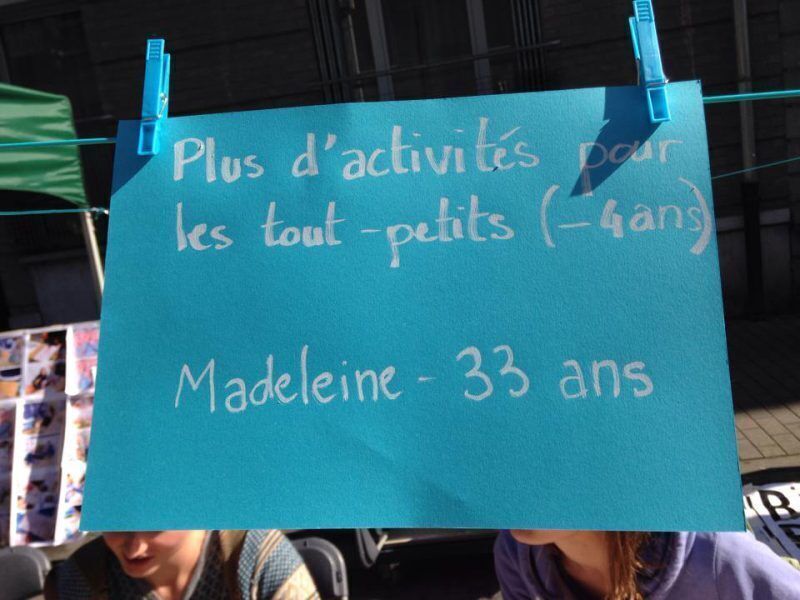 Plus d'activités pour
les tout-petits (-4ans)
Madeleine - 33 ans